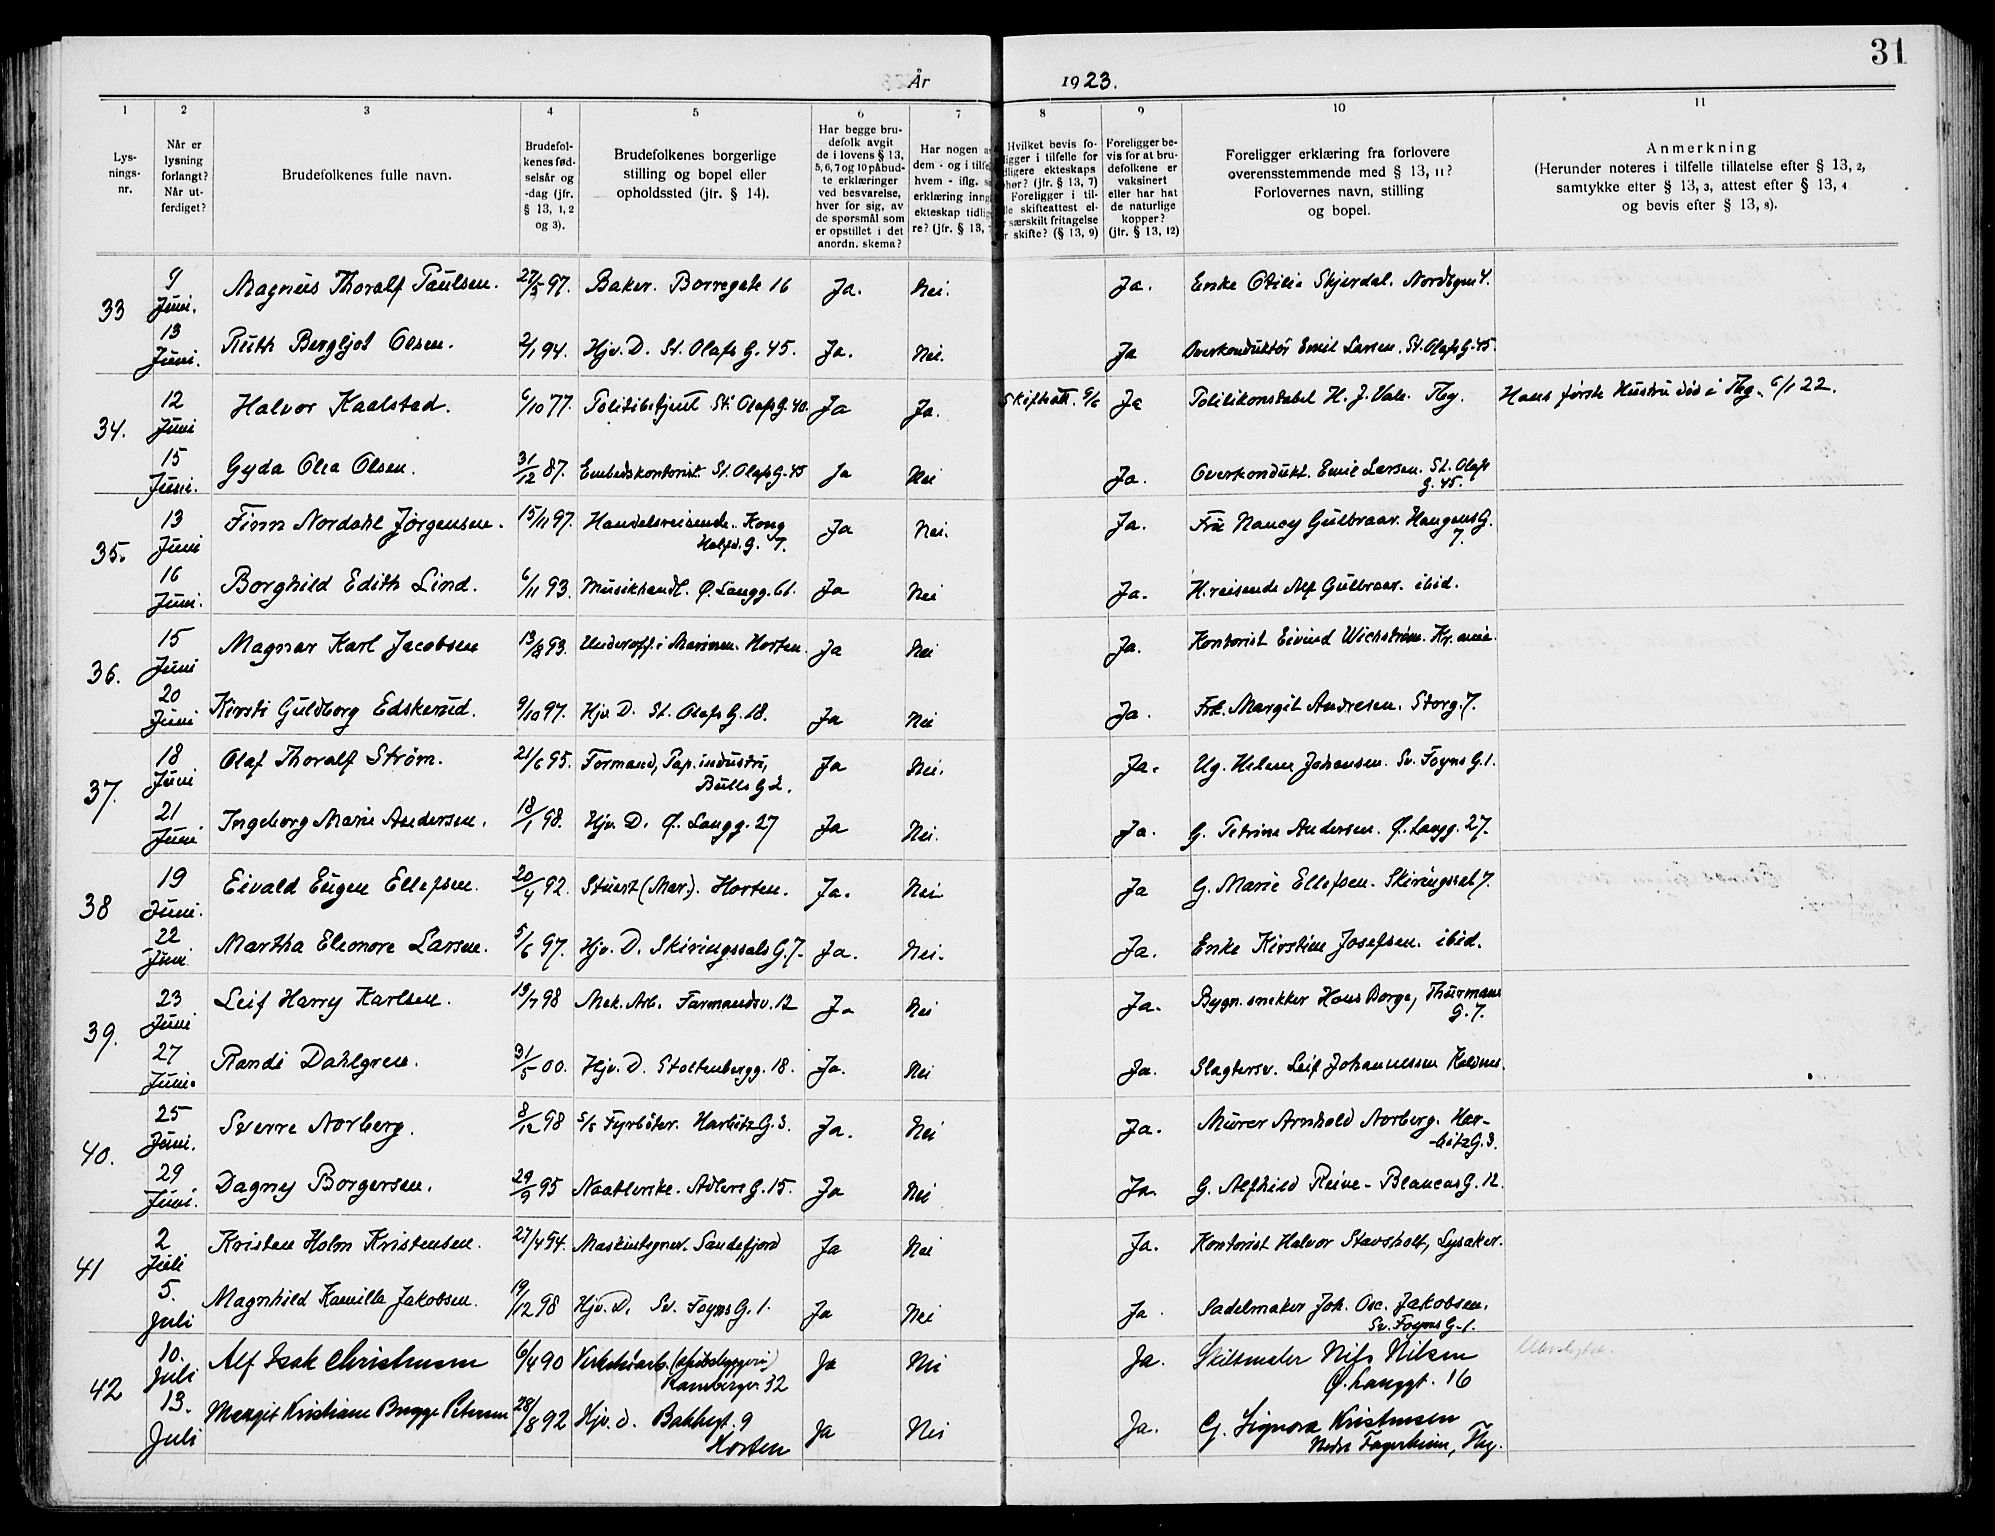 31
År 1923.
1 2 3 4 5 6 7 8 9 10 11
Lys-
nings-
nr.
Når er
lysning
forlangt?
Når ut-
ferdiget?
Brudefolkenes fulle navn.
Brudefol-
kenes fød-
selsår og
-dag (jfr.
§ 13, 1, 2
og 3).
Brudefolkenes borgerlige
stilling og bopel eller
opholdssted (jfr. § 14).
Har begge bru-
defolk avgit
de i lovens § 13,
5, 6, 7 og 10 påbud-
te erklæringer
ved besvarelse,
hver for sig, av
de spørsmål som
er opstillet i det
anordn. skema?
Har nogen a
dem - og i tilfel
hvem - iflg.
erklæring inng
ekteskap tidlig
re? (jfr. § 13,
Hvilket bevis fo-
ligger i tilfelle for
dligere ekteskaps
phør? (jfr. § 13, 7)
Foreligger i til-
lle skifteattest el-
særskilt fritagelse
r skifte? (§ 13, 9)
Foreligger be-
vis for at bru-
defolkene er
vaksinert
eller har hat
de naturlige
kopper?
(jfr. § 13, 12)
Foreligger erklæring fra forlovere
overensstemmende med § 13, 11?
Forlovernes navn, stilling
og bopel.
Anmerkning
(Herunder noteres i tilfelle tillatelse efter § 13, 2,
samtykke efter § 13, 3, attest efter § 13, 4
og bevis efter § 13, 8).
33 9 Juni. Magnus Thoralf Paulsen. 27/5 97. Baker. Borregate 16 Ja. Nei. Ja. Enke Otilie Skjerdal. Nordbyen 4.
13 Juni. Ruth Bergljot Olsen. 2/1 94. Hjv. D. St. Olafs G. 45. Ja. Nei. Ja Overkonduktør Emil Larsen. St. Olafs G. 45.
34. 12 Juni Halvor Kaalstad. 6/10 77. Politibetjent St. Olafs G. 40. Ja Ja. Skifteatt. 9/6 Ja Politikonstabel H. J. Vale. Tbg. Hans første Hustru død i Tbg. 6/1 22.
15 Juni. Gyda Olea Olsen. 31/12 87. Embedskontorist. St. Olafs G. 45 Ja Nei Ja. Overkondukt. Emil Larsen. St. Olafs
G. 45.
35. 13 Juni Finn Nordahl Jørgensen. 15/11 97. Handelsreisende. Kong Ja Nei. Ja. Fru Nancy Gulbraar. Haugens G.
Halfd. G. 7. 7.
16 Juni. Borghild Edith Lind. 6/11 93. Musikhandl. Ø. Langg. 61. Ja Nei Ja. H.reisende Alf Gulbraar. ibid.
36. 15 Juni Magnar Karl Jacobsen 13/8 93. Underoff. i Marinen. Horten. Ja Nei Ja. Kontorist Eivind Wichstrøm. Kr.ania.
20 Juni Kirsti Guldborg Edskerud. 9/10 97. Hjv. D. St. Olafs G. 18. Ja Nei Ja. Frk. Margit Andresen. Storg. 7.
37. 18 Juni Olaf Thoralf Strøm. 21/6 95. Formand, Pap.industri, Ja Nei. Ja. Ug. Helene Johansen. Sv. Foyns G. 1.
Bulls G 2.
21 Juni Ingeborg Marie Andersen. 18/1 98. Hjv. D. Ø. Langg. 27 Ja Nei. Ja. G. Petrine Andersen. Ø. Langg. 27.
38 19 Juni. Eivald Eugen Ellefsen. 20/4 92. Stuert (Mar.). Horten. Ja. Nei Ja G. Marie Ellefsen. Skiringssal 7.
22 Juni Martha Eleonore Larsen. 5/6 97. Hjv. D. Skiringssals G. 7. Ja. Nei. Ja. Enke Kirstine Josefsen. ibid.
39. 23 Juni Leif Harry Karlsen. 19/7 98 Mek. Arb. Farmandsv. 12 Ja Nei Ja. Bygn.snekker Hans Borge, Thurmans
G. 7.
27 Juni. Randi Dahlgren. 31/5 00. Hjv. D. Stoltenbergg. 18. Ja. Nei Ja. Slagtersv. Leif Johannessen Kaldnes.
40. 25 Juni. Sverre Norberg. 8/12 98 S/s Fyrbøter. Harbitz G. 3. Ja. Nei Ja. Murer Arnhold Norberg. Har-
-bitz G. 3.
29 Juni. Dagny Borgersen. 29/9 95 Naatlerske. Adlers G. 15. Ja Nei Ja. G. Alfhild Reine - Blancas G. 12.
41 2 Juli Kristen Holm Kristensen. 27/4 94. Maskintegner. Sandefjord Ja Nei Ja. Kontorist Halvor Stavsholt, Lysaker.
5. Juli Magnhild Kamilla Jakobsen. 19/12 98 Hjv. D. Sv. Foyns G. 1. Ja Nei Ja Sadelmaker Joh. Osc. Jakobsen.
Sv. Foyns G. 1.
42 10. Juli Alf Isak Christensen 6/4 90 Verkstedarb. (skibsbyggeri) Ja Nei Ja. Skiltmaler Nils Nilsen
Rambergv. 32 Ø. Langgt. 16
13. Juli Margit Kristiane Brygge Petersen 28/8 92 Hjv. d. Bakkegt. 9 Ja Nei Ja. G. Signora Kristensen
Horten Nedre Fagerheim, Tbg.